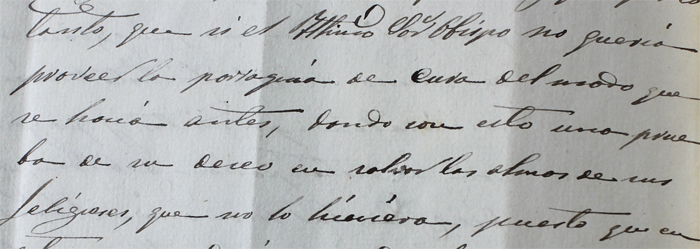 tanto, que si el Illmo Sor Obispo no queria
proveer la parroquia de Cura del modo que
se hacia antes, dando con esto una prue
ba de su deseo en salvar las almas de sus
feligreses, que no lo hiciera, puesto que en